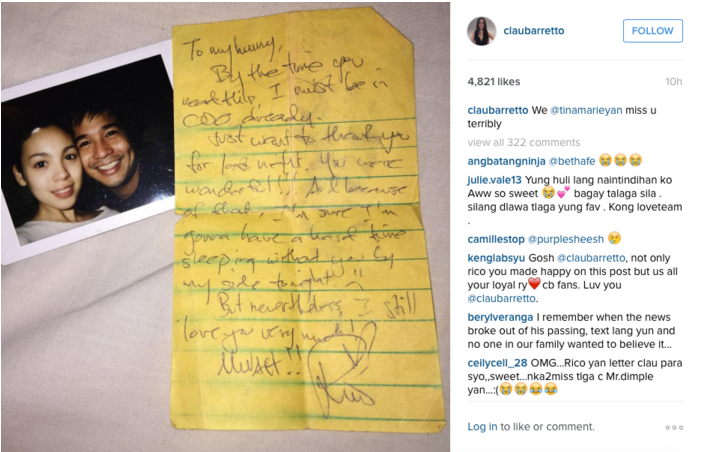 To my hunny,
By the time you
read this, I must be in
CDO already.
Just want to thank you
for last night. You were
wonderful!!! And because
of that, I'm sure I'm
gonna have a hard time
sleeping without you by
my side tonight!
But nevertheless, I still
love you very much!
MWAH!!
claubarretto
FOLLOW
4,821 likes
10h
claubarretto We @tinamarieyan miss u
terribly
view all 322 comments
angbatangninja @bethafe 😢😢😢
julie.vale13 Yung huli lang naintindihan ko
Aww so sweet 😢💕 bagay talaga sila .
silang dlawa tlaga yung fav . Kong loveteam
.
camillestop @purplesheesh 😢
kenglabsyu Gosh @claubarretto, not only
rico you made happy on this post but us all
your loyal ry❤cb fans. Luv you
@claubarretto.
berylveranga I remember when the news
broke out of his passing, text lang yun and
no one in our family wanted to believe it...
ceilycell_28 OMG...Rico yan letter clau para
syo,,sweet...nka2miss tlga c Mr.dimple
yan...:(😢😢😂😂
Log in to like or comment.